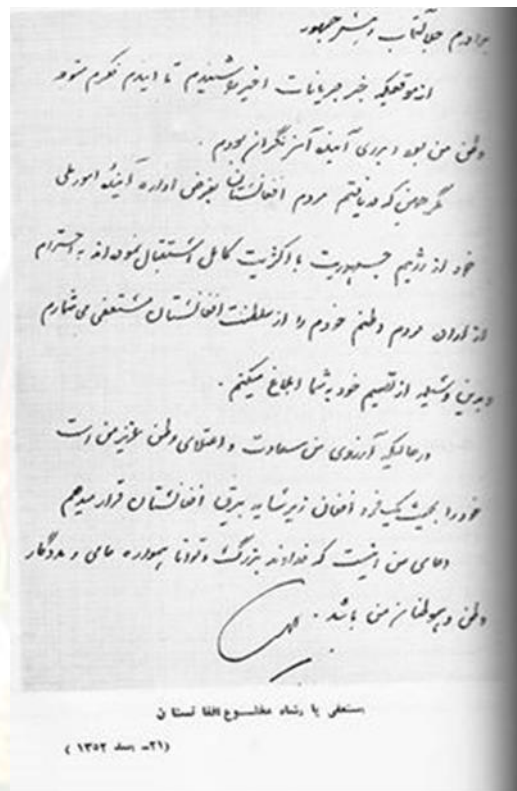 برادرم جلالتمآب رئیس جمهور
از موقعیکه خبر جریانات اخیر را شنیدم تا ایندم فکرم متوجه
وطن من بود و برای آینده آن نگران بودم .
مگر همین که دریافتم مردم افغانستان بغرض اداره آیندهٔ امور ملی
خود از رژیم جمهوریت با اکثریت کامل استقبال نموده اند به احترام
از اراده مردم وطنم خودم را از سلطنت افغانستان مستعفی می شمارم
و بدین وسیله از تصمیم خود به شما ابلاغ میکنم .
در حالیکه آرزوی من سعادت و اعتلای وطن عزیز من است
خود را بحیث یک فرد افغان زیر سایه بیرق افغانستان قرار میدهم
دعای من اینست که خداوند بزرگ و توانا همواره حامی و مددگار
وطن و هموطنان من باشد .
مستعفی پادشاه مخلوع افغانستان
(۲۱ــ اسد ۱۳۵۲ )